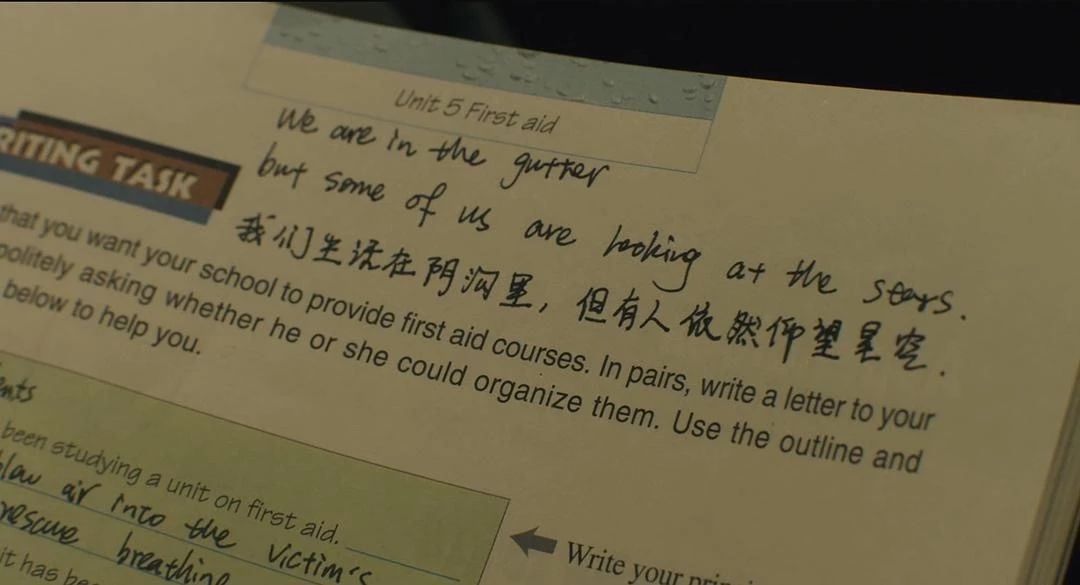 Unit 5 First aid
We are in the gutter
but some of us are looking at the stars.
我们生活在阴沟里，但有人依然仰望星空.
RITING TASK
that you want your school to provide first aid courses. In pairs, write a letter to your
politely asking whether he or she could organize them. Use the outline and
below to help you.
ents
been studying a unit on first aid.
blow air into the victim's
rescue breathing
it has
Write your